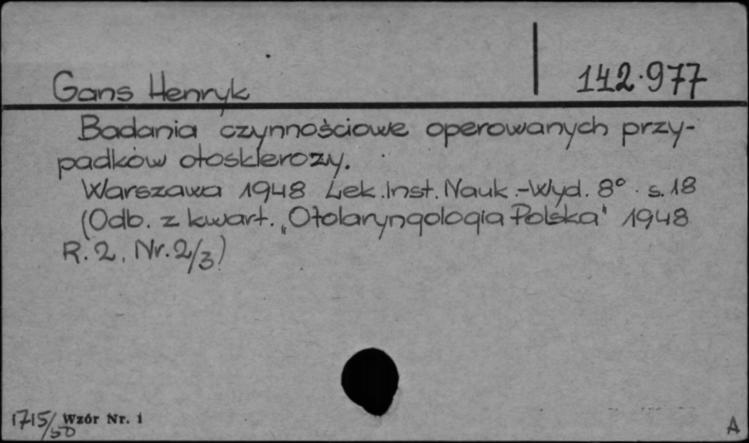 Gans Henryk
142.977
Badania czynnościowe operowanych przy-
padków otosklerozy.
Warszawa 1948 Lek.Inst.Nauk.-Wyd. 8° . s.18
(Odb. z kwart. „Otolaryngologia Polska" 1948
R. 2, Nr.2/3)
1715/50 Wzór Nr. 1
A